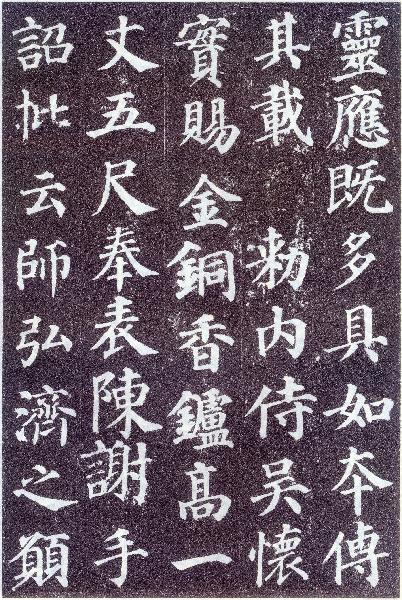 靈應既多具如夲傳
其載 勑內侍吳懷
實賜金銅香鑪髙一
丈五尺奉表陳謝手
詔批云師弘濟之願